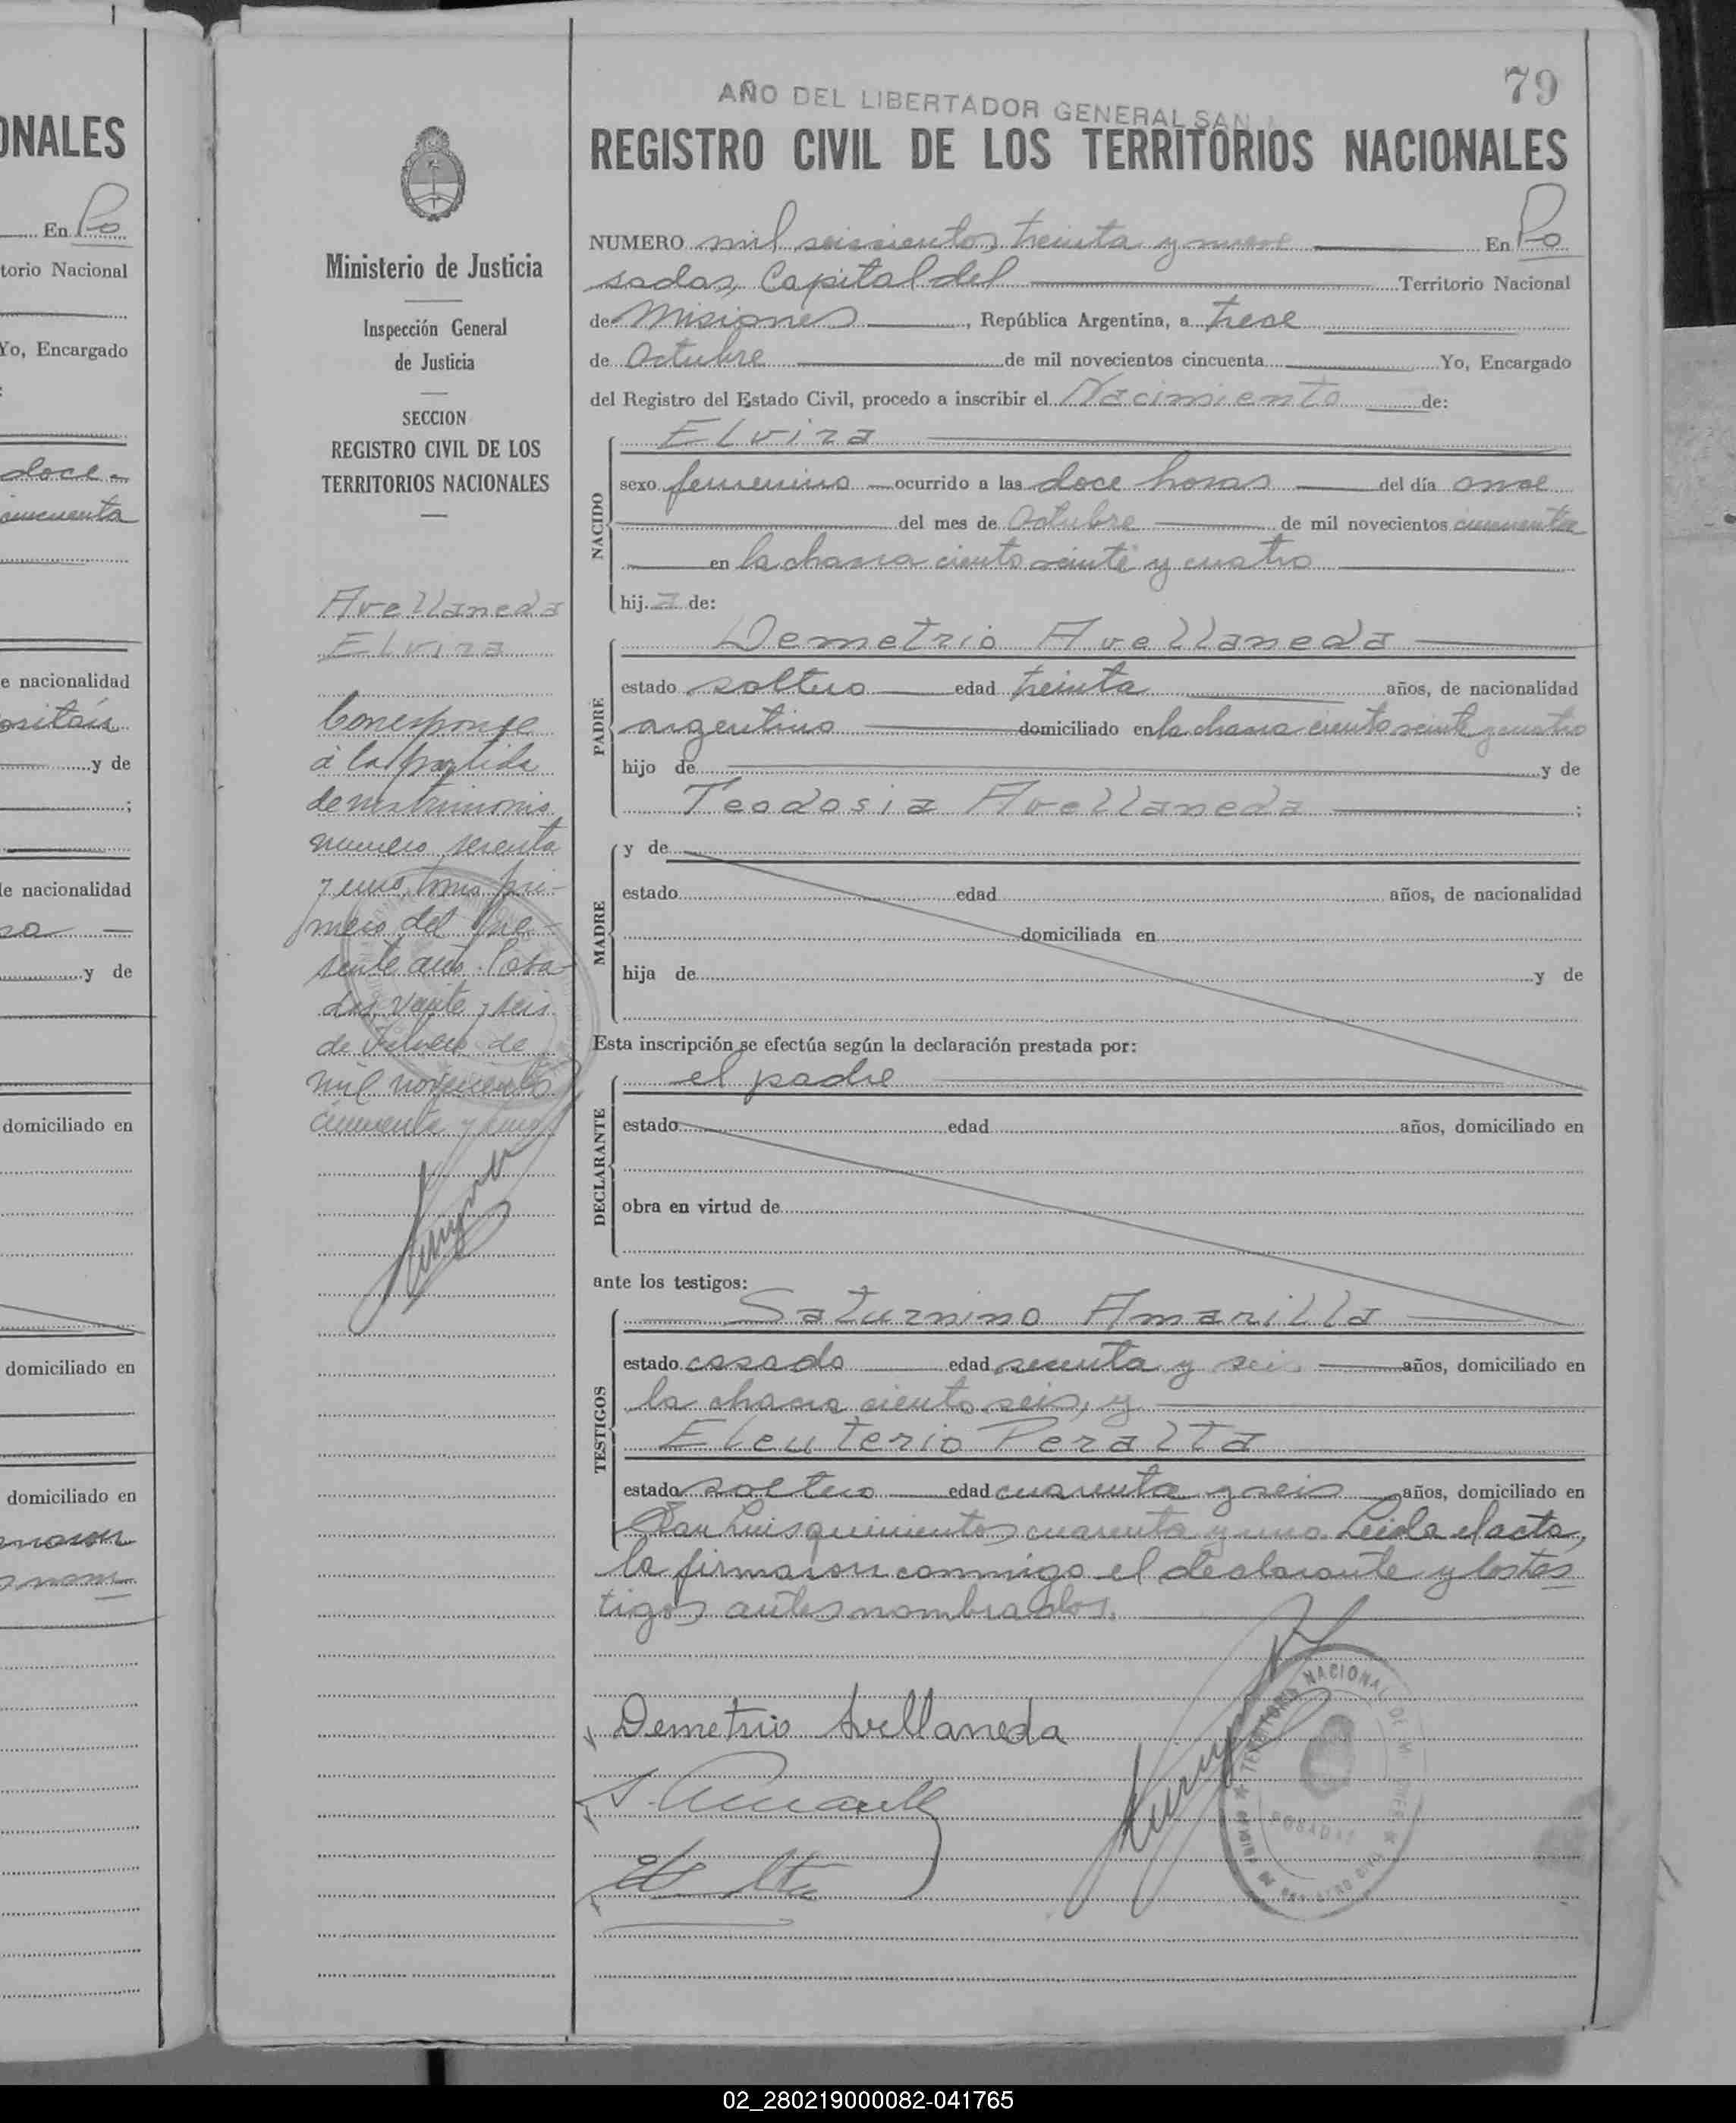 ONALES
En Po
torio Nacional
Yo, Encargado
doce
cincuenta
e nacionalidad
y de
;
le nacionalidad
y de
domiciliado en
domiciliado en
domiciliado en
Ministerio de Justicia
Inspección General
de Justicia
SECCION
REGISTRO CIVIL DE LOS
TERRITORIOS NACIONALES
Avellaneda
Elvira
Corresponde
a la partida
de matrimonio
numero sesenta
y uno, tomo pri-
mero del pre-
sente año. Posa-
das, veinte y seis
de Febrero de
mil novecientos
cincuenta y uno
79
AÑO DEL LIBERTADOR GENERAL SAN
REGISTRO CIVIL DE LOS TERRITORIOS NACIONALES
NUMERO mil seiscientos treinta y nueve En Po
sadas, Capital del Territorio Nacional
de Misiones, República Argentina, a trece
de Octubre de mil novecientos cincuenta Yo, Encargado
del Registro del Estado Civil, procedo a inscribir el Nacimiento de:
Elvira
NACIDO
sexo femenino ocurrido a las doce horas del día once
del mes de Octubre de mil novecientos cincuenta
en la chacra ciento veinte y cuatro
hija de:
Demetrio Avellaneda
PADRE
estado soltero edad treinta años, de nacionalidad
argentino domiciliado en la chacra ciento veinte y cuatro
hijo de y de
Teodosia Avellaneda ;
MADRE
y de
estado edad años, de nacionalidad
domiciliada en
hija de y de
Esta inscripción se efectúa según la declaración prestada por:
el padre
DECLARANTE
estado edad años, domiciliado en
obra en virtud de
ante los testigos:
Saturnino Amarilla
TESTIGOS
estado casado edad sesenta y seis años, domiciliado en
la chacra ciento seis, y
Eleuterio Peralta
estado soltero edad cuarenta y seis años, domiciliado en
San Luis quinientos cuarenta y uno. Leida el acta,
la firmaron conmigo el declarante y los tes
tigos antes nombrados.
Demetrio Avellaneda
TERRITORIO NACIONAL DE MISIONES
POSADAS
02_280219000082-041765